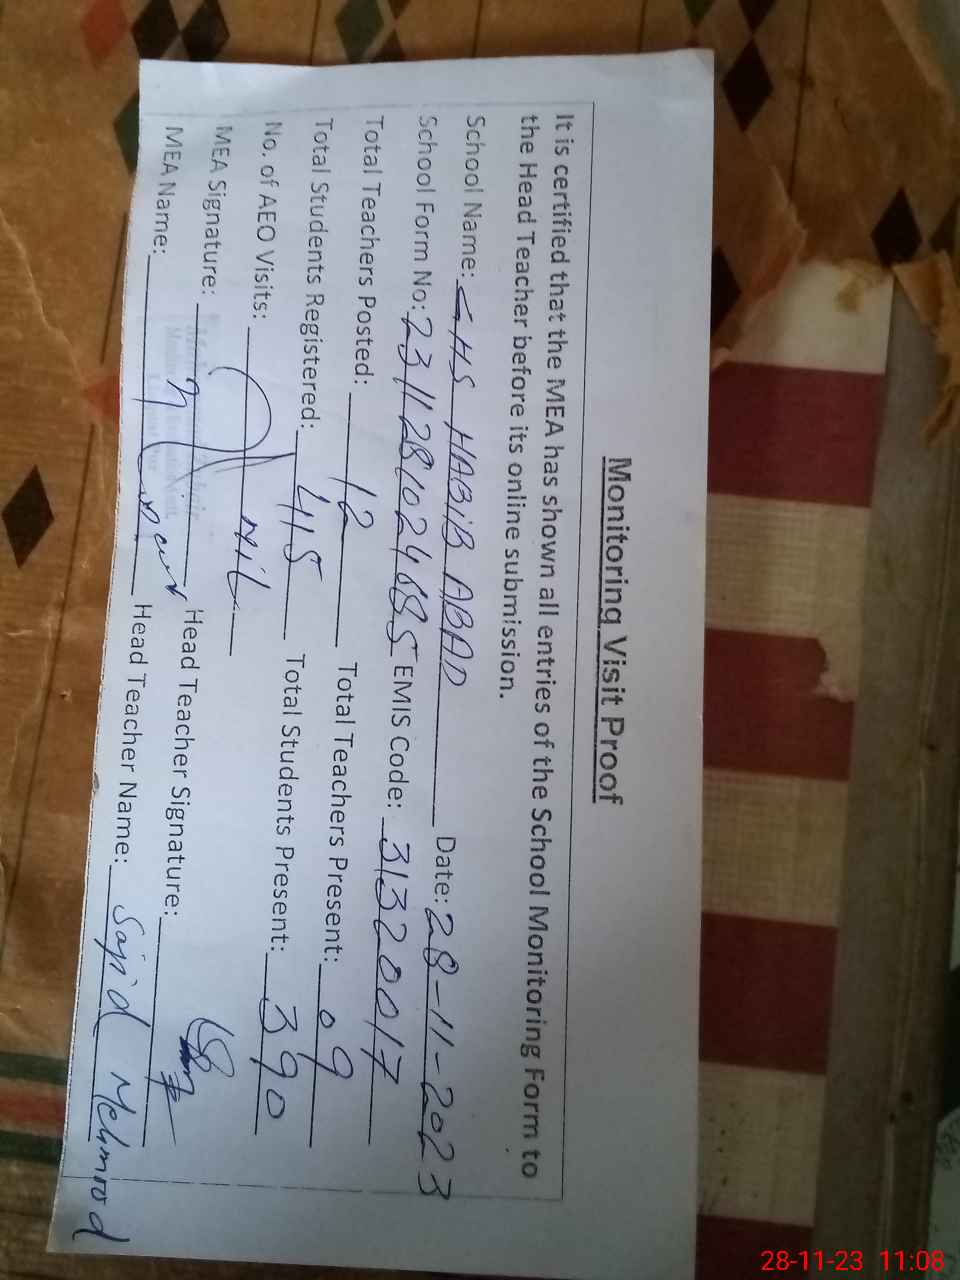 Monitoring Visit Proof
It is certified that the MEA has shown all entries of the School Monitoring Form to
the Head Teacher before its online submission.
School Name: GHS HABIB ABAD Date: 28-11-2023
School Form No: EMIS Code: 31320017
Total Teachers Posted: 12 Total Teachers Present: 09
Total Students Registered: 415 Total Students Present: 390
No. of AEO Visits: Nil
MEA Signature: Head Teacher Signature:
MEA Name: Head Teacher Name: Sajid Mehmood
28-11-23 11:08